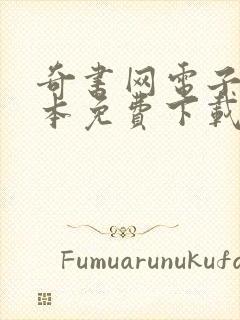 奇书网电子
本免费下载
Fumuarunukufa